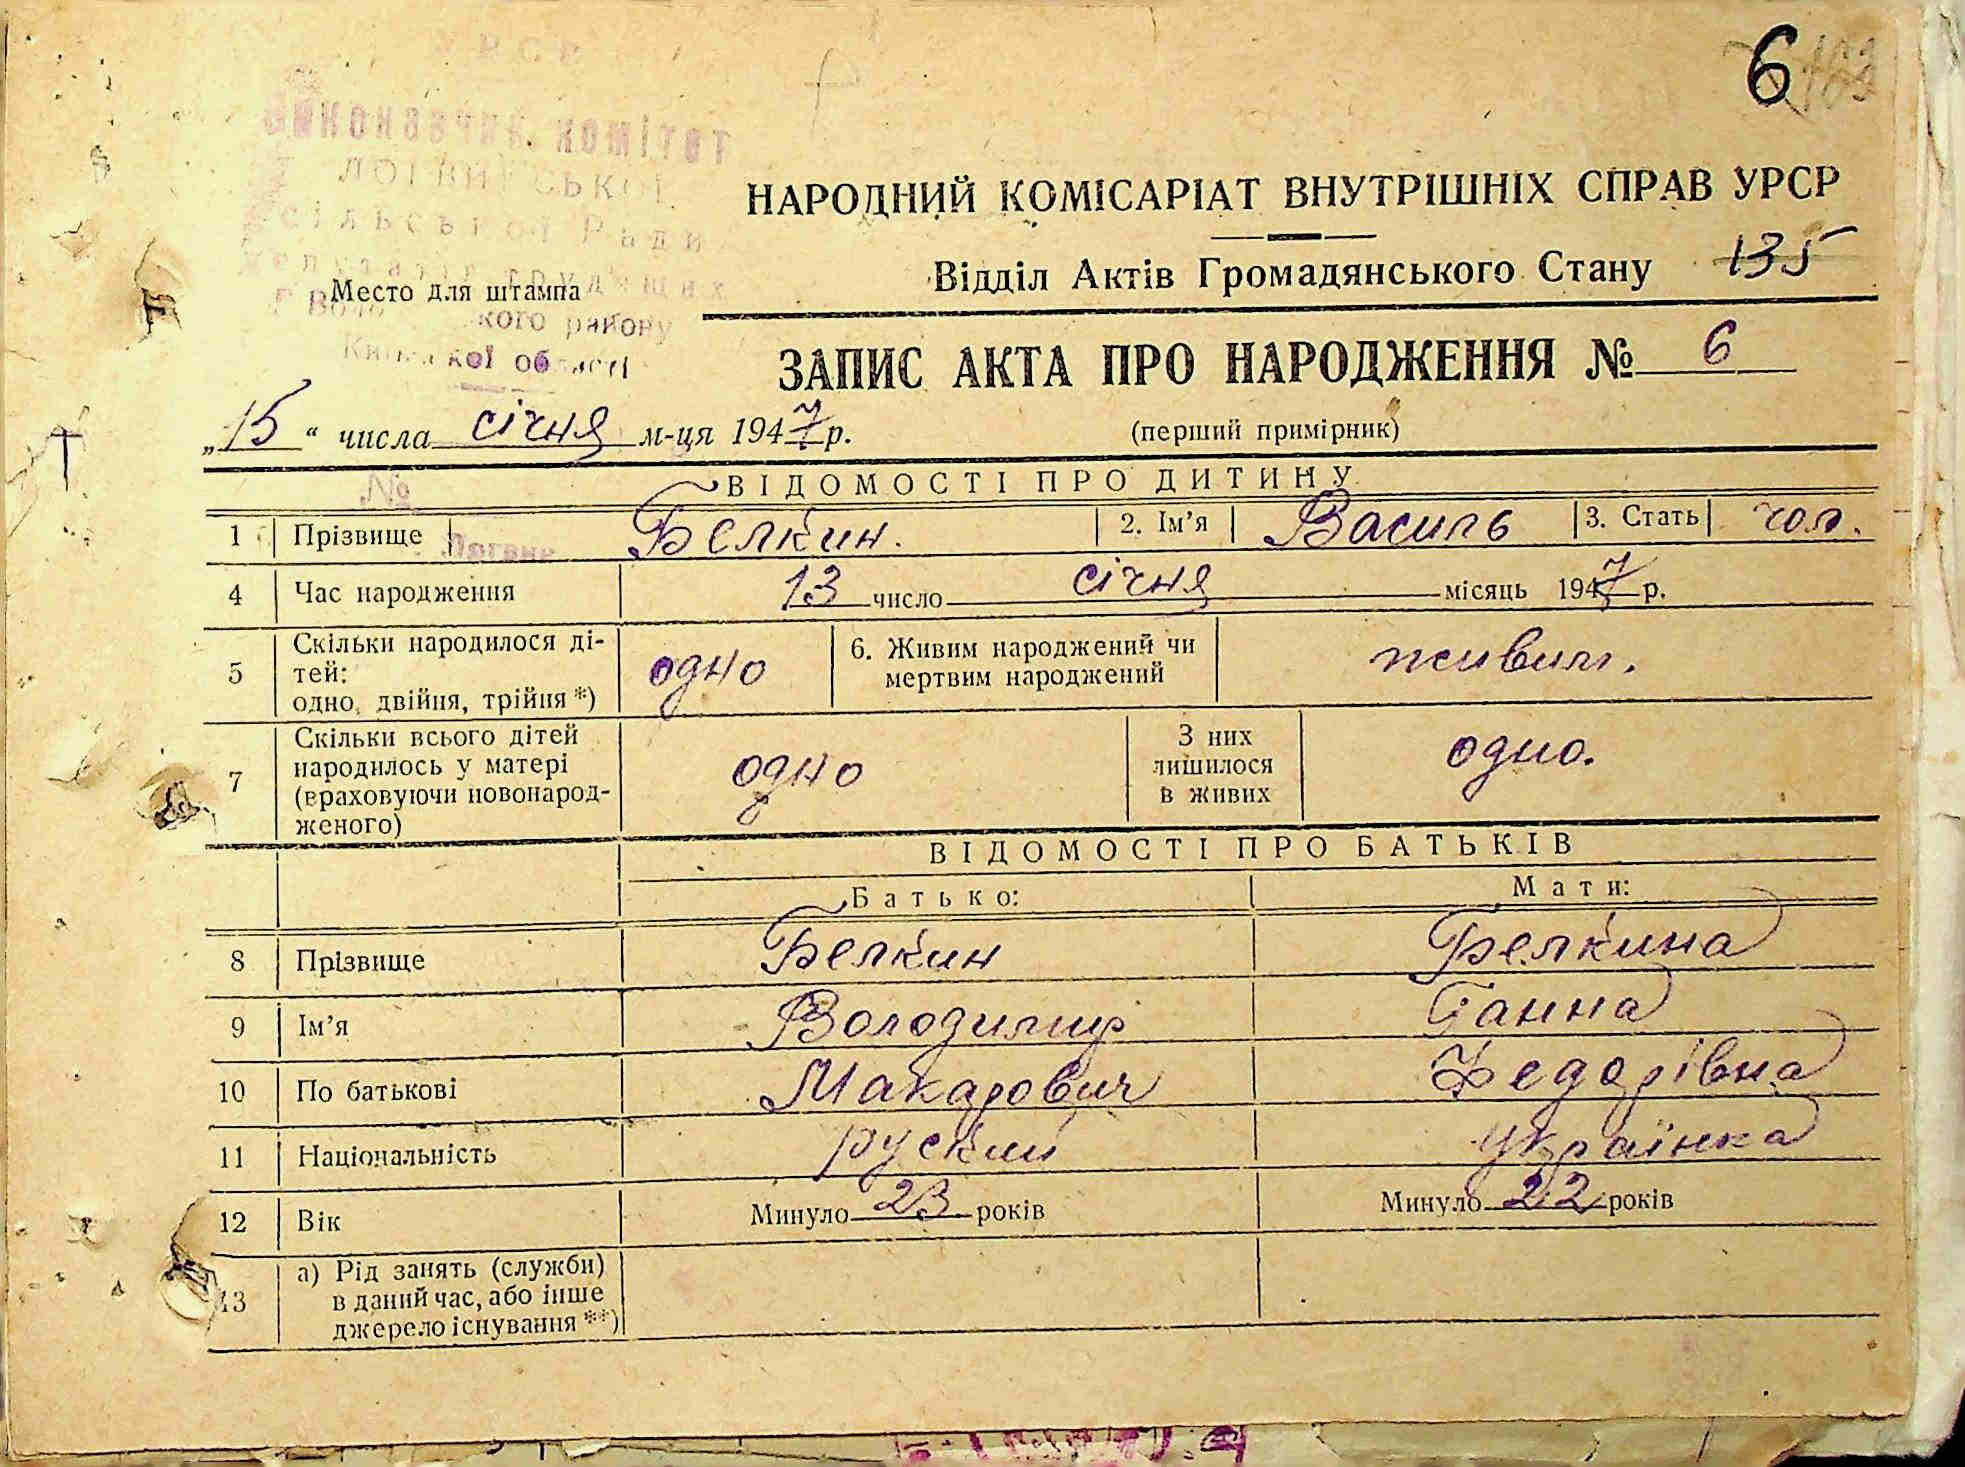 6
УРСР
ВИКОНАВЧИЙ КОМІТЕТ
СІЛЬСЬКОЇ Ради
НАРОДНИЙ КОМІСАРІАТ ВНУТРІШНІХ СПРАВ УРСР
Відділ Актів Громадянського Стану 135
Место для штампа
кого району
кої області
ЗАПИС АКТА ПРО НАРОДЖЕННЯ № 6
„15“ числа січня м-ця 1947 р.
(перший примірник)
№
ВІДОМОСТІ ПРО ДИТИНУ
1 Прізвище Белкин. 2. Ім’я Василь 3. Стать чол.
4 Час народження 13 число січня місяць 1947 р.
5 Скільки народилося ді-
тей:
одно, двійня, трійня *) одно 6. Живим народжений чи
мертвим народжений живим.
7 Скільки всього дітей
народилось у матері
(враховуючи новонарод-
женого) одно З них
лишилося
в живих одно.
ВІДОМОСТІ ПРО БАТЬКІВ
Батько: Мати:
8 Прізвище Белкин Белкина
9 Ім’я Володимир Ганна
10 По батькові Макарович Федорівна
11 Національність руский українка
12 Вік Минуло 23 років Минуло 22 років
13 а) Рід занять (служби)
в даний час, або інше
джерело існування **)